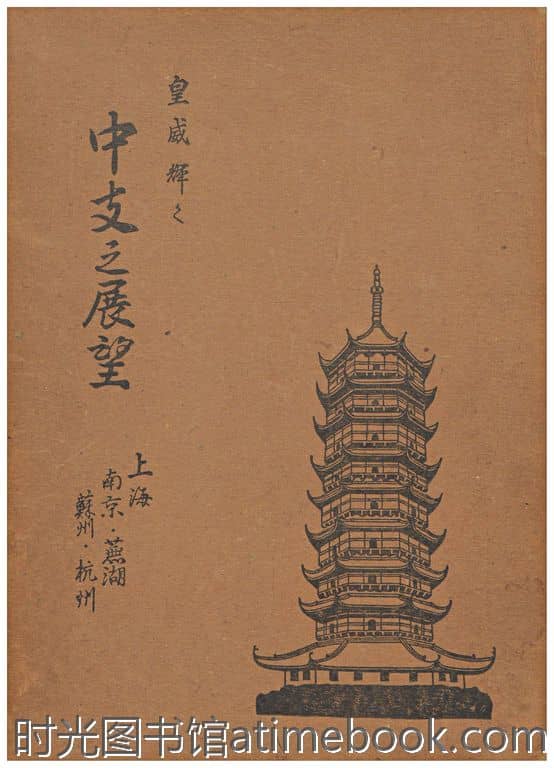 皇威輝く
中支之展望
上海
南京・蕪湖
蘇州・杭州
时光图书馆atimebook.com